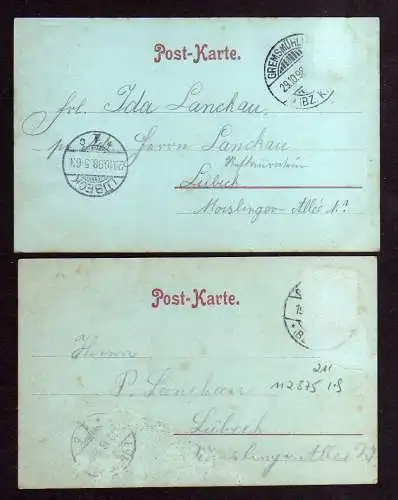 Post-Karte.
GREMSMÜHLEN
29.10.98
(BZ. K.)
Frl. Ida Lanchau
pr Herrn Lanchau
Lübeck
Moislinger-Allee
LÜBECK
29.10.98.5-6N
Post-Karte.
Herrn
P. Lanchau
211
112875
Lübeck
Moislinger Allee